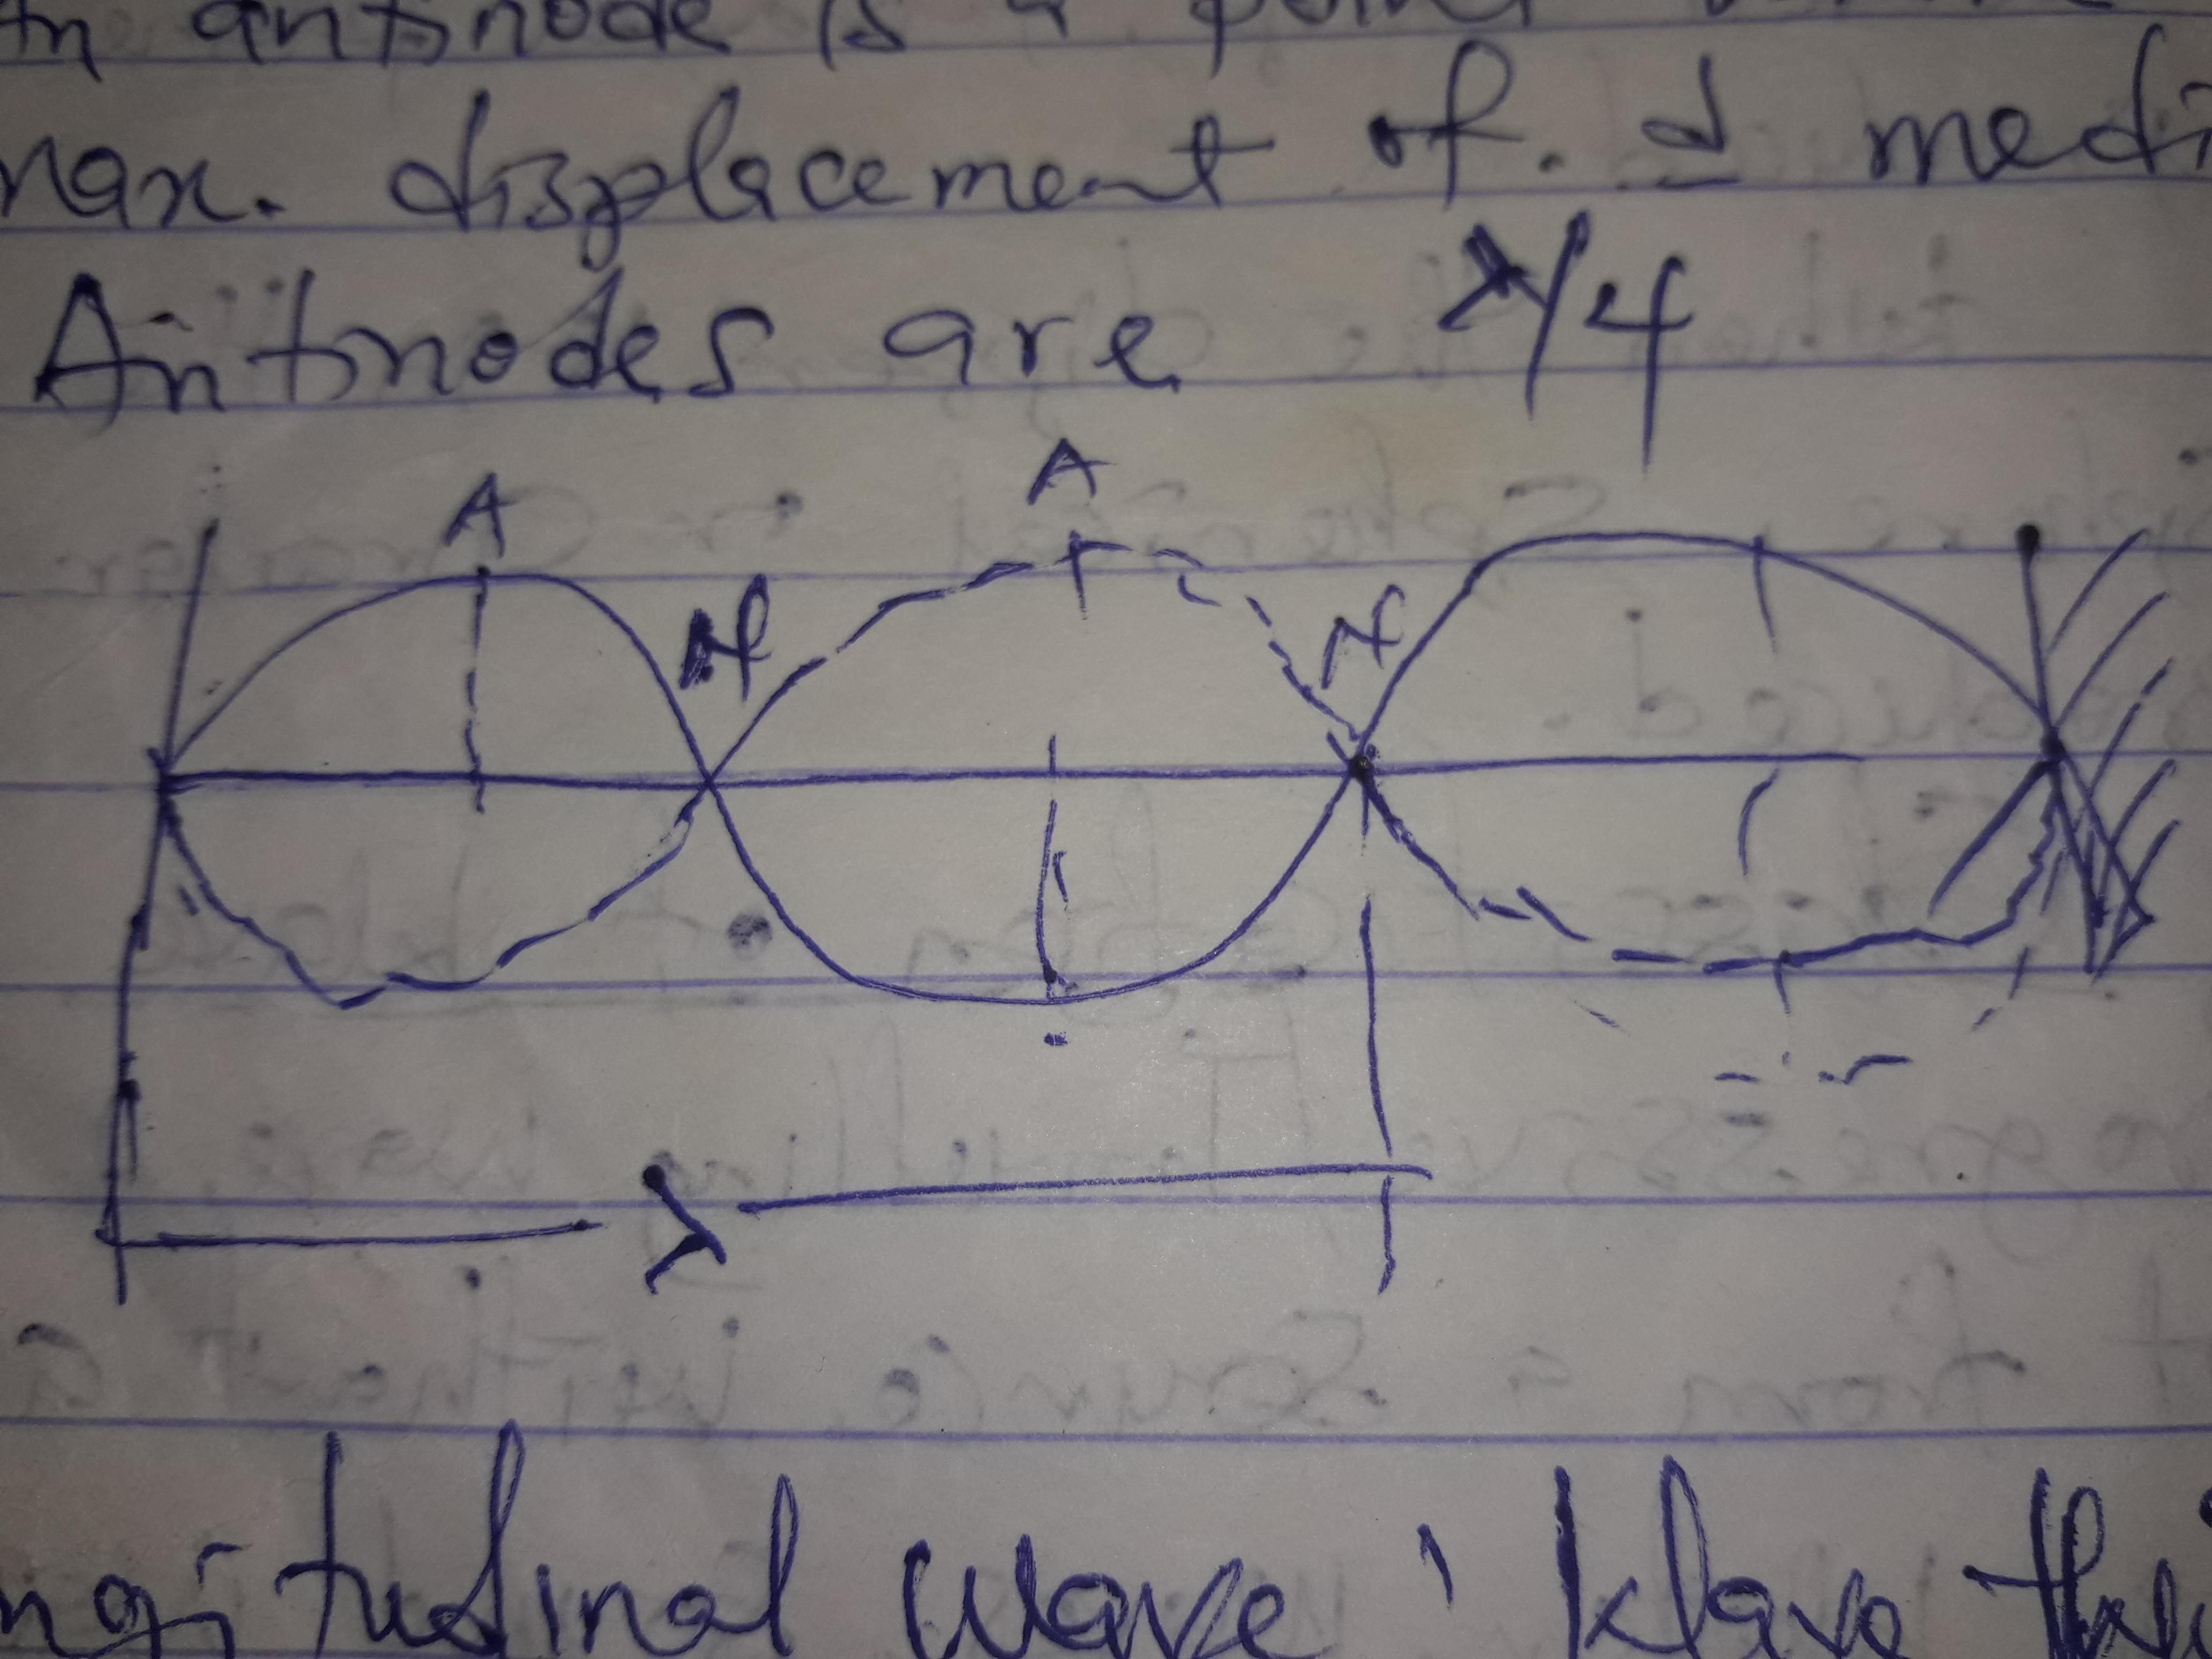 antinode is a point
max. displacement of. d medi
Antnodes are λ/4
A A
N N
λ
ngitudinal wave